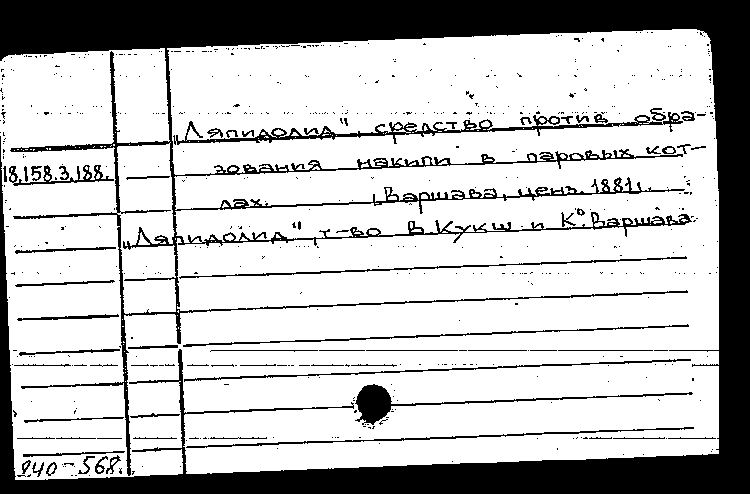 „Ляпидолид", средство против обра-
18.158.3.188. зования накипи в паровых кот-
лах. Варшава, ценз. 1881.
„Ляпидолид", т-во В. Кукш и К° Варшава
240-568.